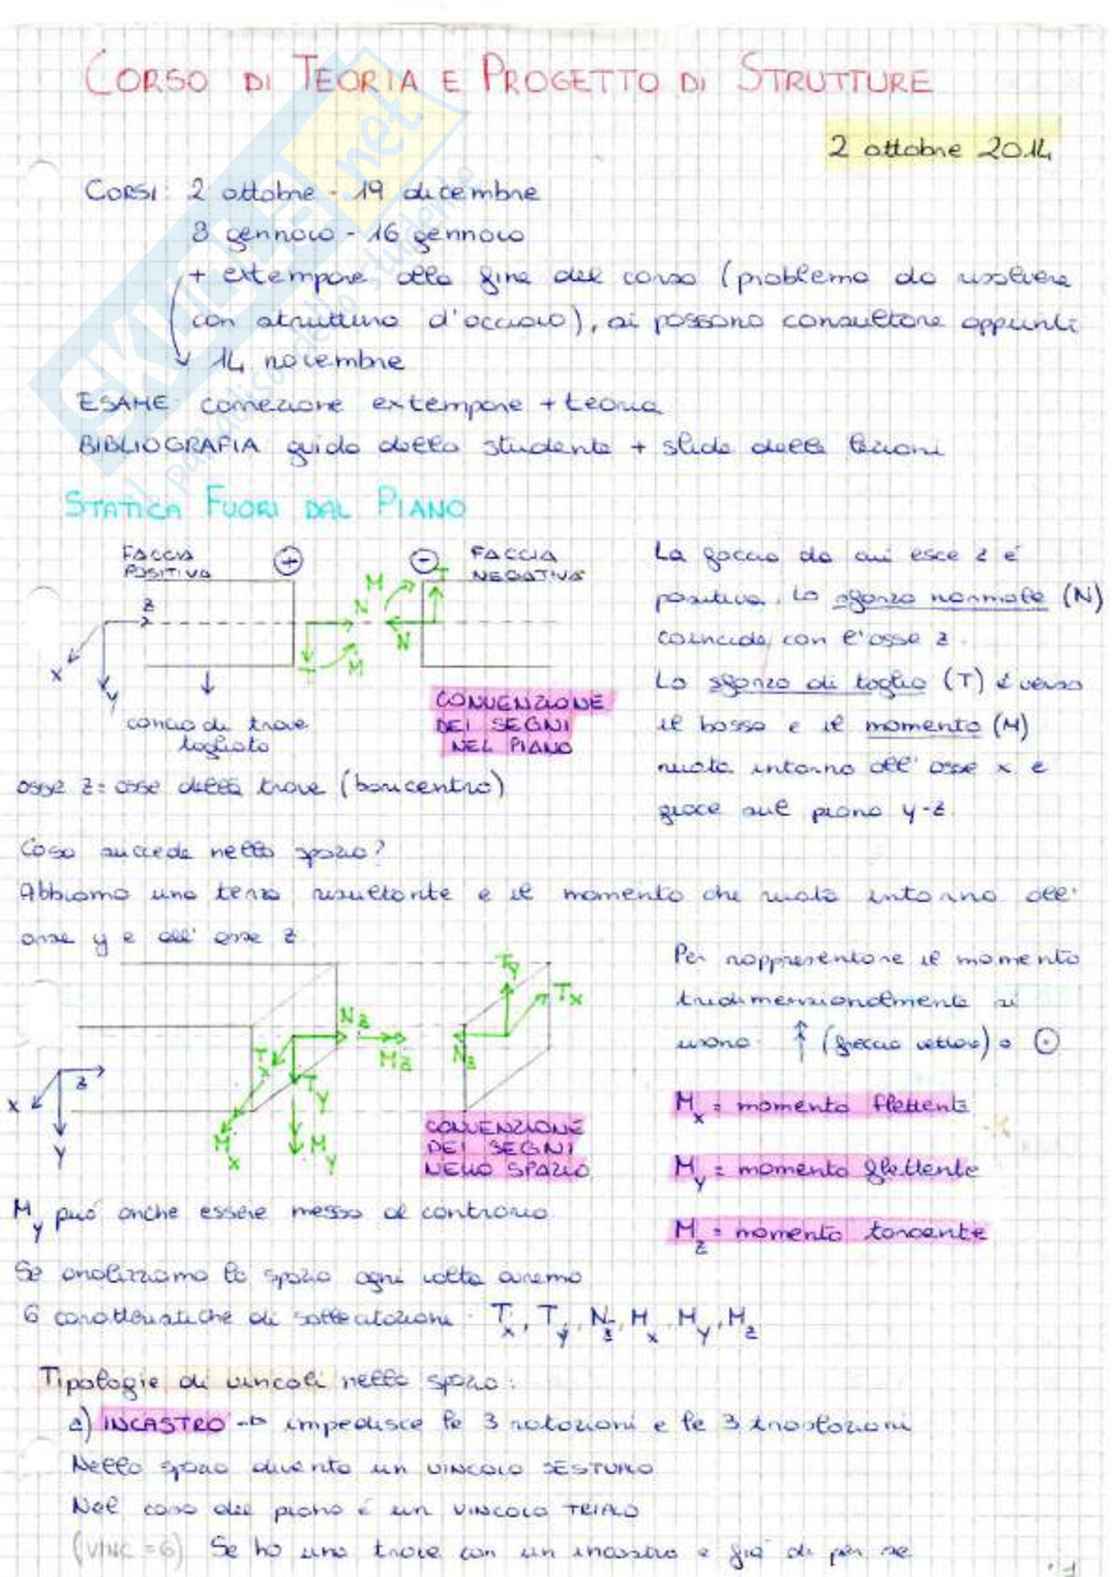 CORSO DI TEORIA E PROGETTO DI STRUTTURE
2 ottobre 2014
CORSI: 2 ottobre - 19 dicembre
8 gennaio - 16 gennaio
+ extempore alla fine del corso (problema da risolvere
con struttura d'acciaio), si possono consultare appunti
14 novembre
ESAME: correzione extempore + teoria
BIBLIOGRAFIA: guida dello studente + slide delle lezioni
STATICA FUORI DAL PIANO
FACCIA POSITIVA
+
-
FACCIA NEGATIVA
z
x
y
N
T
M
M
T
N
concio di trave
tagliato
CONVENZIONE
DEI SEGNI
NEL PIANO
La faccia da cui esce z è
positiva. Lo sforzo normale (N)
coincide con l'asse z.
Lo sforzo di taglio (T) è verso
il basso e il momento (M)
ruota intorno all'asse x e
giace sul piano y-z.
asse z = asse della trave (baricentro)
Cosa succede nello spazio?
Abbiamo una terza risultante e il momento che ruota intorno all'
asse y e all'asse z
z
x
y
Nz
Mz
Tx
Ty
Mx
My
Ty
Tx
Nz
CONVENZIONE
DEI SEGNI
NELLO SPAZIO
Per rappresentare il momento
tridimensionalmente si
usano: (freccia vettore) o
Mx = momento flettente
My = momento flettente
Mz = momento torcente
My può anche essere messo al contrario
Se analizziamo lo spazio ogni volta avremo
6 caratteristiche di sollecitazioni: Tx, Ty, Nz, Mx, My, Mz
Tipologie di vincoli nello spazio:
a) INCASTRO → impedisce le 3 rotazioni e le 3 traslazioni
Nello spazio diventa un VINCOLO SESTUPLO
Nel caso del piano è un VINCOLO TRIPLO
(VINC = 6) Se ho una trave con un incastro è già di per se
SKUOLA.net